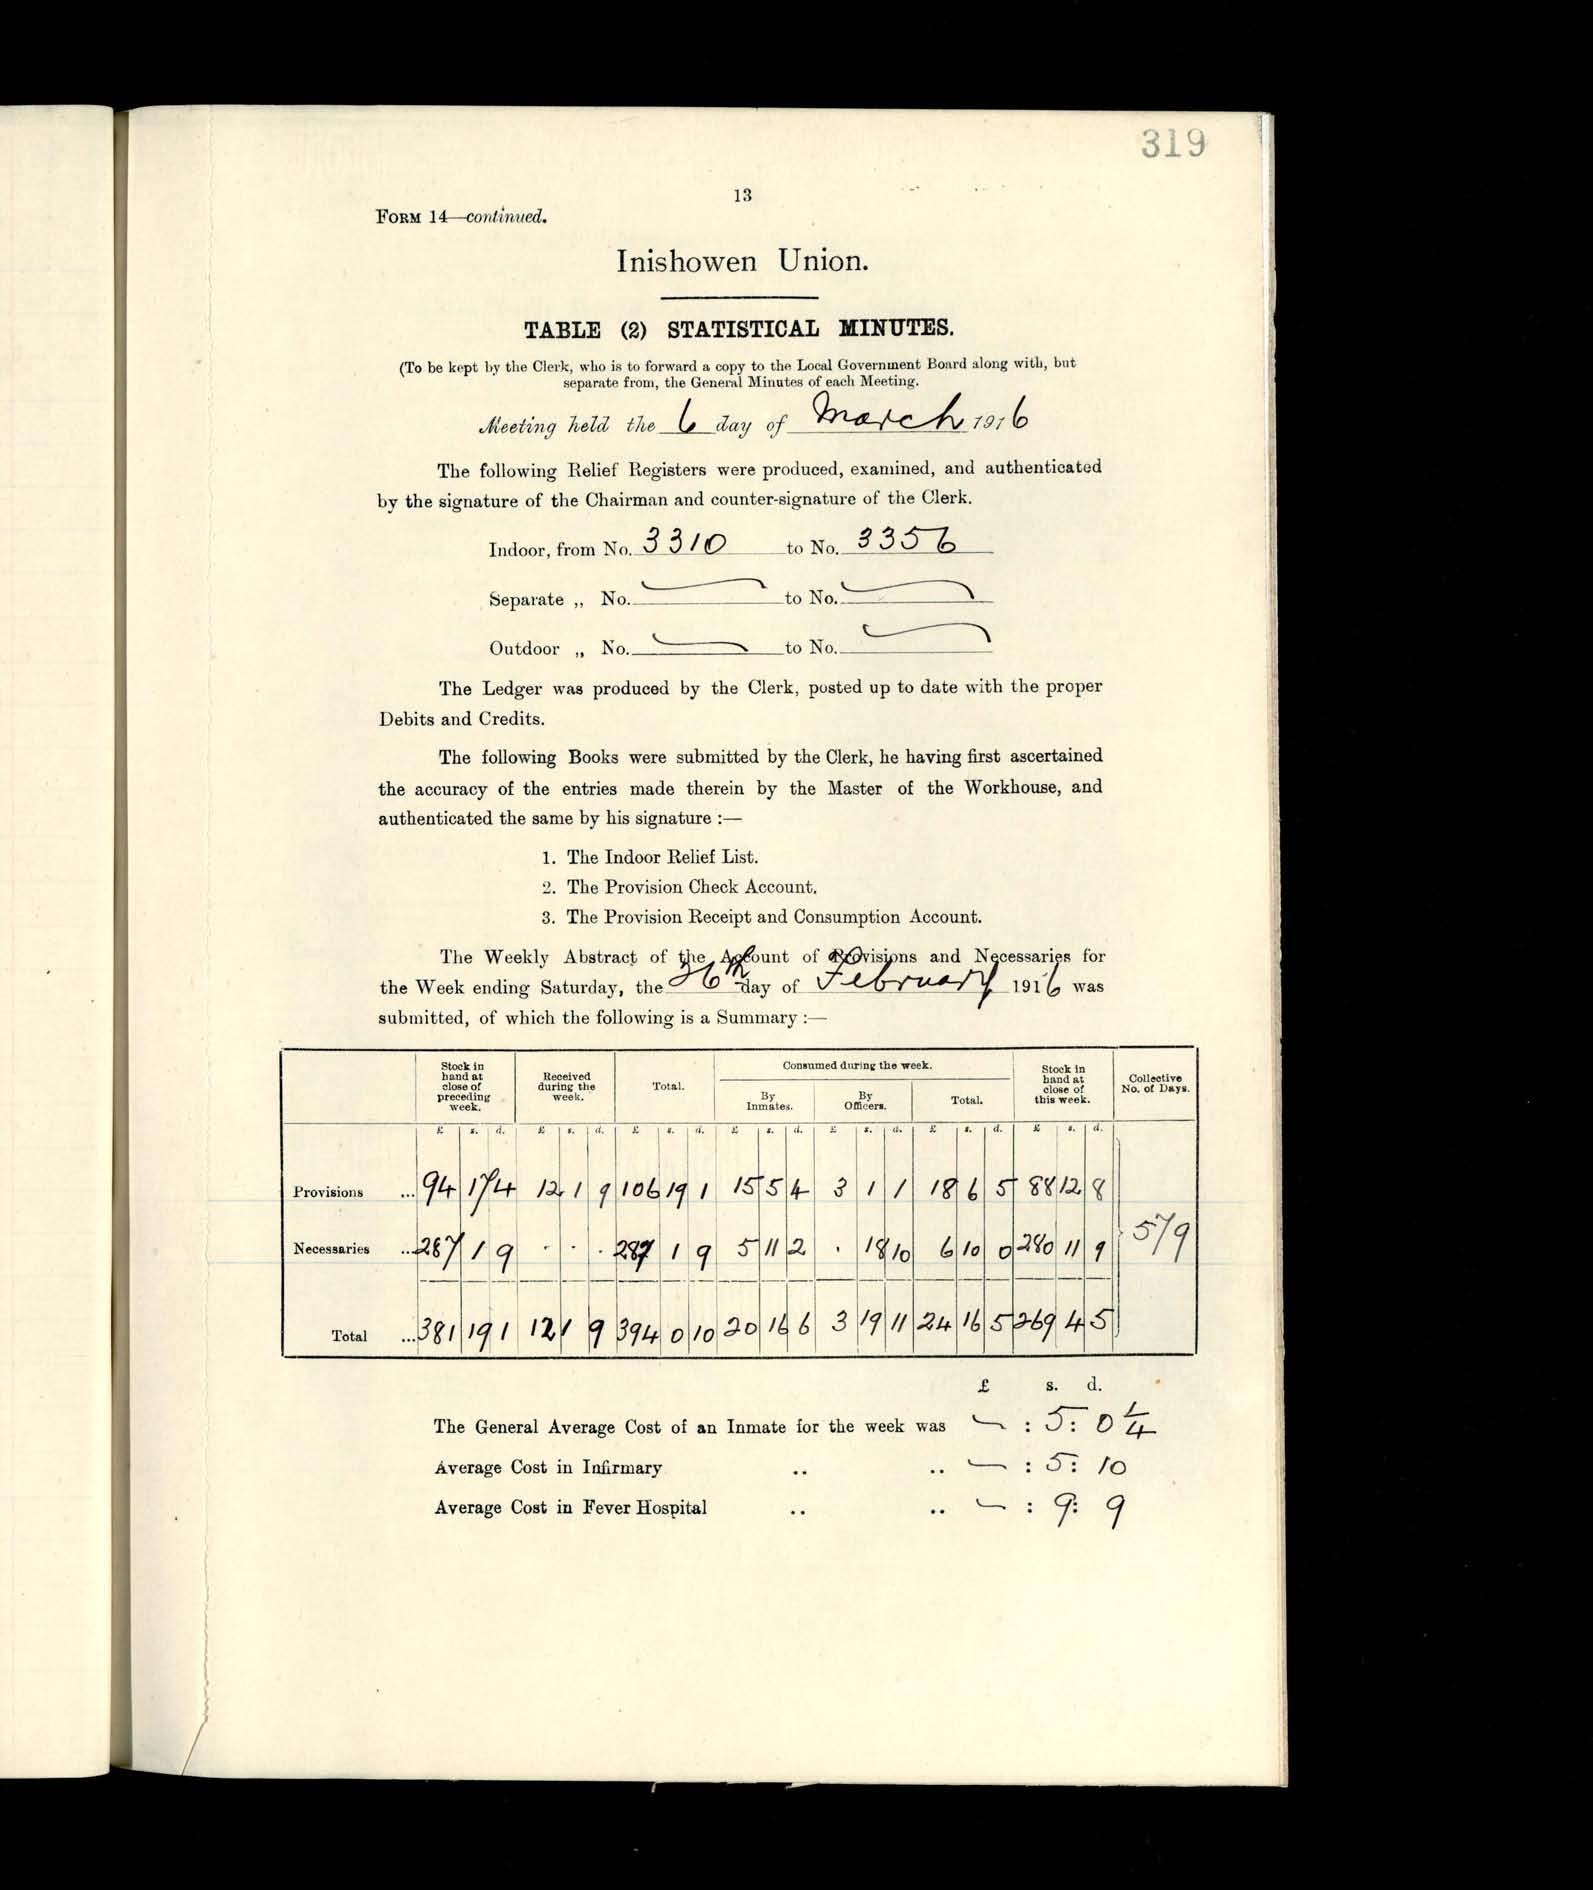 319
13
FORM 14—continued.
Inishowen Union.
TABLE (2) STATISTICAL MINUTES.
(To be kept by the Clerk, who is to forward a copy to the Local Government Board along with, but
separate from, the General Minutes of each Meeting.
Meeting held the 6 day of March 1916
The following Relief Registers were produced, examined, and authenticated
by the signature of the Chairman and counter-signature of the Clerk.
Indoor, from No. 3310 to No. 3356
Separate „ No. to No.
Outdoor „ No. to No.
The Ledger was produced by the Clerk, posted up to date with the proper
Debits and Credits.
The following Books were submitted by the Clerk, he having first ascertained
the accuracy of the entries made therein by the Master of the Workhouse, and
authenticated the same by his signature :—
1. The Indoor Relief List.
2. The Provision Check Account.
3. The Provision Receipt and Consumption Account.
The Weekly Abstract of the Account of Provisions and Necessaries for
the Week ending Saturday, the 26th day of February 1916 was
submitted, of which the following is a Summary :—
Stock in hand at close of preceding week. Received during the week. Total. Consumed during the week. By Inmates. By Officers. Total. Stock in hand at close of this week. Collective No. of Days.
£ s. d. £ s. d. £ s. d. £ s. d. £ s. d. £ s. d. £ s. d.
Provisions ... 94 17 4 12 1 9 106 19 1 15 5 4 3 1 1 18 6 5 88 12 8
Necessaries ... 287 1 9 . . . 287 1 9 5 11 2 . 18 10 6 10 0 280 11 9 579
Total ... 381 19 1 12 1 9 394 0 10 20 16 6 3 19 11 24 16 5 269 4 5
£ s. d.
The General Average Cost of an Inmate for the week was — : 5 : 0 1/4
Average Cost in Infirmary .. .. — : 5 : 10
Average Cost in Fever Hospital .. .. — : 9 : 9